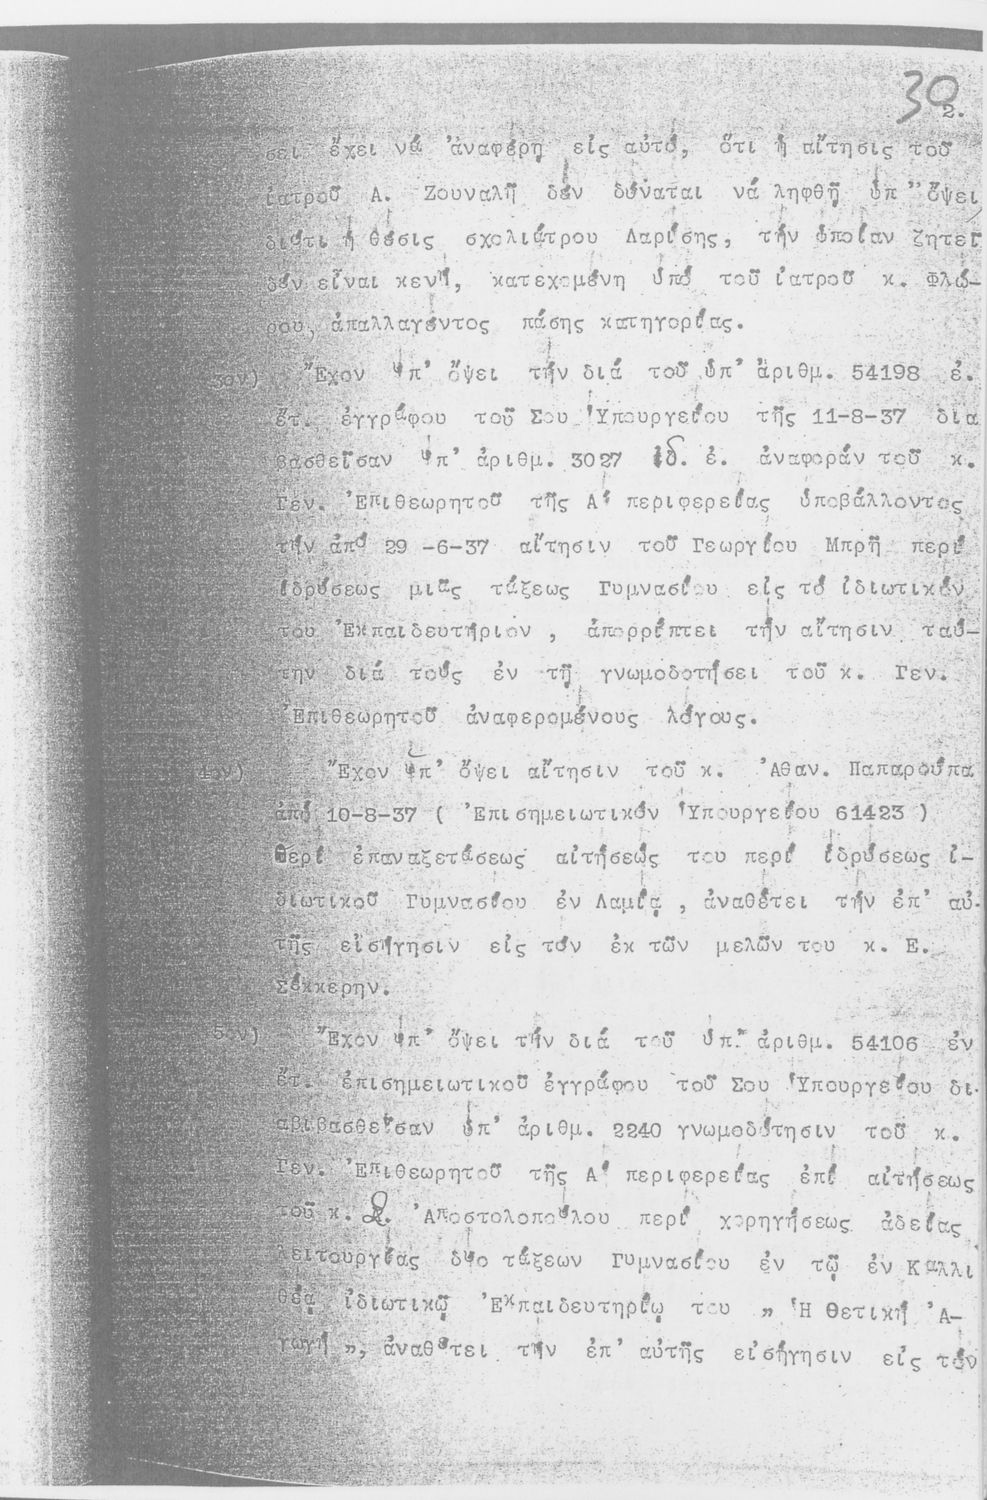 30
2.
σει ἔχει νά ἀναφέρῃ εἰς αὐτό, ὅτι ἡ αἴτησις τοῦ
ἰατροῦ Α. Ζουναλῆ δέν δύναται νά ληφθῇ ὑπ' ὄψει
διότι ἡ θέσις σχολιάτρου Λαρίσης, τήν ὁποίαν ζητεῖ
δέν εἶναι κενή, κατεχομένη ὑπό τοῦ ἰατροῦ κ. Φλώ-
ρου, ἀπαλλαγέντος πάσης κατηγορίας.
3ον) Ἔχον ὑπ' ὄψει τήν διά τοῦ ὑπ' ἀριθμ. 54198 ἐ.
ἔτ. ἐγγράφου τοῦ Σου Ὑπουργείου τῆς 11-8-37 δια
βασθεῖσαν ὑπ' ἀριθμ. 3027 ἰδ. ἐ. ἀναφοράν τοῦ κ.
Γεν. Ἐπιθεωρητοῦ τῆς Α' περιφερείας ὑποβάλλοντος
τήν ἀπό 29 -6-37 αἴτησιν τοῦ Γεωργίου Μπρῆ περί
ἱδρύσεως μιᾶς τάξεως Γυμνασίου εἰς τό ἰδιωτικόν
του Ἐκπαιδευτήριον , ἀπορρίπτει τήν αἴτησιν ταύ-
την διά τούς ἐν τῇ γνωμοδοτήσει τοῦ κ. Γεν.
Ἐπιθεωρητοῦ ἀναφερομένους λόγους.
4ον) Ἔχον ὑπ' ὄψει αἴτησιν τοῦ κ. Ἀθαν. Παπαρούπα
ἀπό 10-8-37 ( Ἐπισημειωτικόν Ὑπουργείου 61423 )
περί ἐπαναξετάσεως αἰτήσεώς του περί ἱδρύσεως ἰ-
διωτικοῦ Γυμνασίου ἐν Λαμίᾳ , ἀναθέτει τήν ἐπ' αὐ-
τῆς εἰσήγησιν εἰς τόν ἐκ τῶν μελῶν του κ. Ε.
Σόκκερην.
5ον) Ἔχον ὑπ' ὄψει τήν διά τοῦ ὑπ' ἀριθμ. 54106 ἐν
ἔτ. ἐπισημειωτικοῦ ἐγγράφου τοῦ Σου Ὑπουργείου δι-
αβιβασθεῖσαν ὑπ' ἀριθμ. 2240 γνωμοδότησιν τοῦ κ.
Γεν. Ἐπιθεωρητοῦ τῆς Α' περιφερείας ἐπί αἰτήσεως
τοῦ κ. Ἀποστολοπούλου περί χορηγήσεως ἀδείας
λειτουργίας δύο τάξεων Γυμνασίου ἐν τῷ ἐν Καλλι
θέᾳ ἰδιωτικῷ Ἐκπαιδευτηρίῳ του „ Ἡ Θετική Ἀ-
γωγή „, ἀναθέτει τήν ἐπ' αὐτῆς εἰσήγησιν εἰς τόν